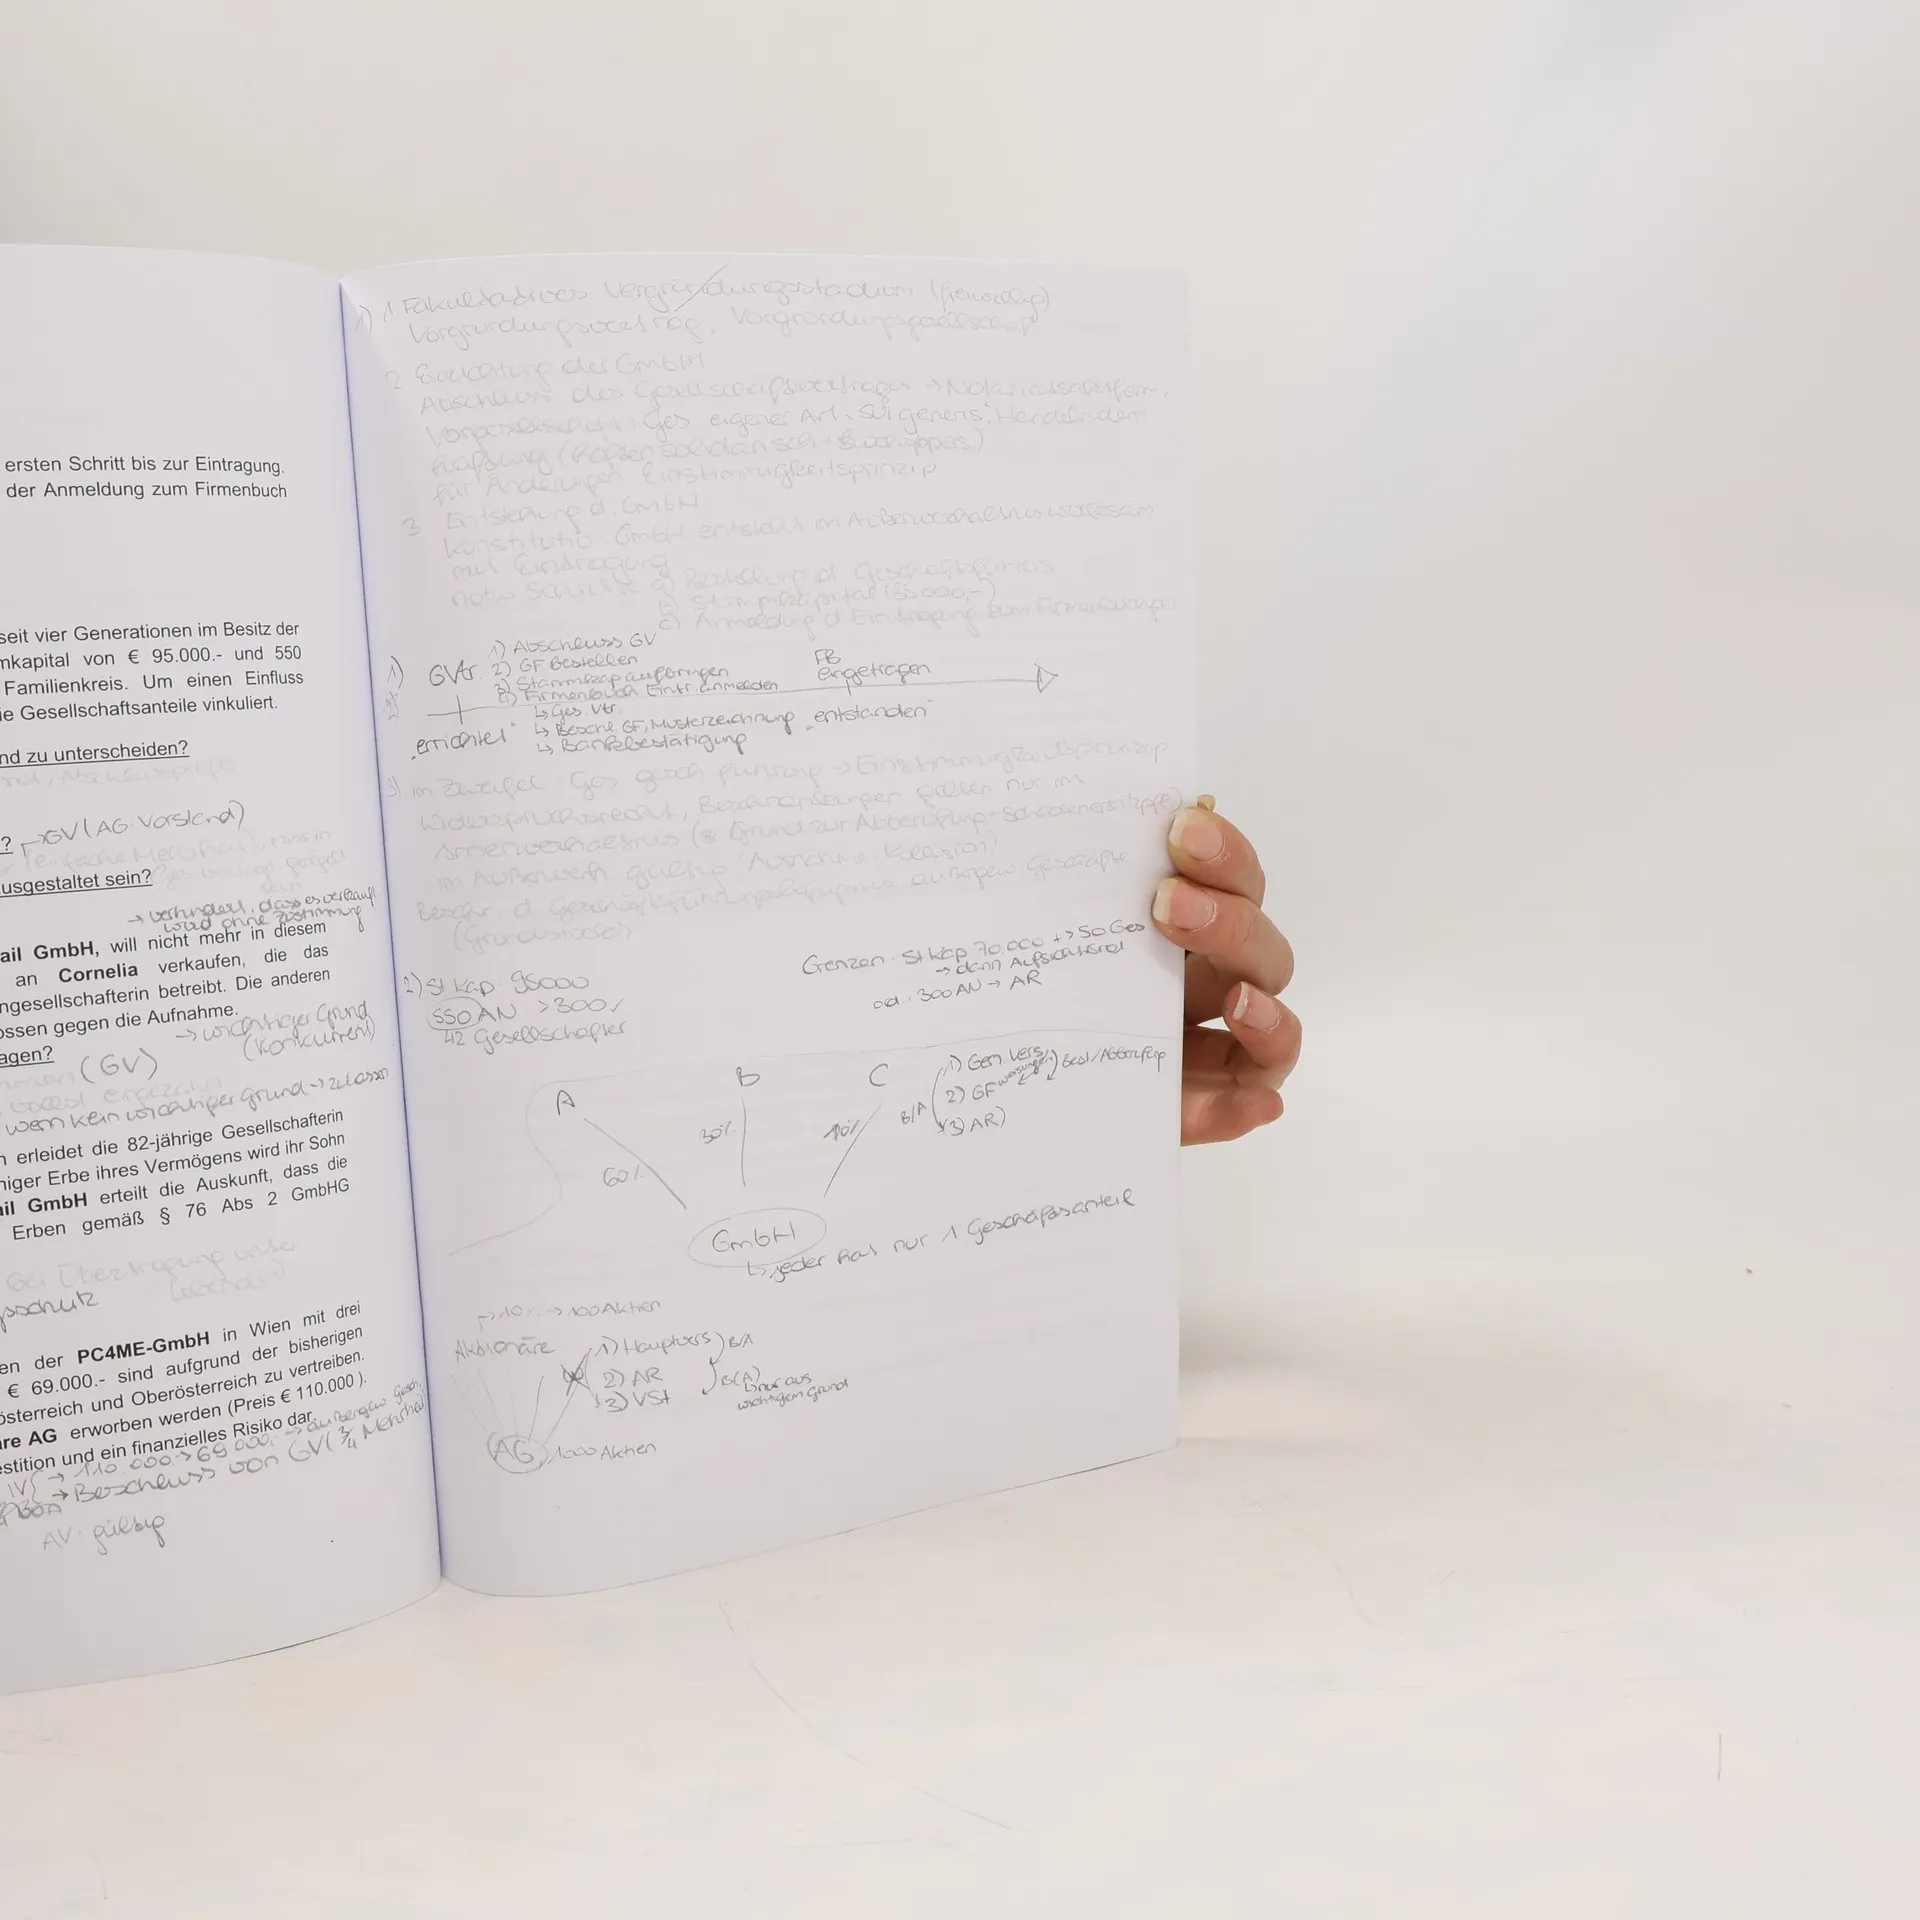 ersten Schritt bis zur Eintragung.
der Anmeldung zum Firmenbuch
seit vier Generationen im Besitz der
mkapital von € 95.000.- und 550
Familienkreis. Um einen Einfluss
ie Gesellschaftsanteile vinkuliert.
nd zu unterscheiden?
? →GV (AG: Vorstand)
usgestaltet sein?
→ verhindert, dass es verkauft
wird ohne Zustimmung
ail GmbH, will nicht mehr in diesem
an Cornelia verkaufen, die das
ngesellschafterin betreibt. Die anderen
ossen gegen die Aufnahme.
→ wichtiger Grund
(Konkurrent)
agen?
(GV)
wenn kein wichtiger Grund → zulassen
n erleidet die 82-jährige Gesellschafterin
niger Erbe ihres Vermögens wird ihr Sohn
ail GmbH erteilt die Auskunft, dass die
Erben gemäß § 76 Abs 2 GmbHG
bei Übertragung unter
en der PC4ME-GmbH in Wien mit drei
€ 69.000.- sind aufgrund der bisherigen
österreich und Oberösterreich zu vertreiben.
are AG erworben werden (Preis € 110.000 ).
estition und ein finanzielles Risiko dar.
→ 110.000 > 69.000,- → außergew. Gesch.
→ Beschluss von GV (3/4 Mehrheit
AV: gültig
1) 1 Fakultatives Vorgründungsstadium (freiwillig)
Vorgründungsvertrag, Vorgründungsgesellschaft
2 Errichtung der GmbH
Abschluss des Gesellschaftsvertrages → Notariatsaktsform,
Vorgesellschaft: Ges eigener Art "sui generis", Handelnden-
haftung (haften solidarisch +
für Änderungen Einstimmigkeitsprinzip
3 Entstehung d. GmbH
konstitutiv GmbH entsteht im Außenverhältnis wirksam
mit Eintragung
notw Schritte a) Bestellung d Geschäftsführers
b) Stammkapital (35000,-)
c) Anmeldung d Eintragung beim Firmenbuch
1) GVtr.
1) Abschluss GV
2) GF bestellen
3) Stammkap aufbringen
4) Firmenbuch Eintr. anmelden
FB
eingetragen
"errichtet"
↳ Ges. Vtr.
↳ Beschl. GF, Musterzeichnung
↳ Bankbestätigung
"entstanden"
3) im Zweifel Ges gesch führung → Einstimmigkeitsprinzip
Widerspruchsrecht, Beschränkungen gelten nur im
Innenverhältnis ( Grund zur Abberufung + Schadenersatzpfl)
im Außenverh gültig Ausnahme: Kollusion)
Beschr. d Geschäftsführungsbefugnis außergew. Geschäfte
2) St Kap 95000
550 AN > 300 ✓
42 Gesellschafter
Grenzen: St Kap 70.000 + > 50 Ges
→ dann Aufsichtsrat
od. 300 AN → AR
A B C
60% 30% 10%
B/A
1) Gen. Vers.
2) GF
3) AR)
Weisungen
Best/Abberufung
GmbH
↳ jeder hat nur 1 Geschäftsanteil
→ 10% → 100 Aktien
Aktionäre
1) Hauptvers
2) AR
3) VSt
B/A
B(A)
↳ nur aus
wichtigem Grund
AG
1000 Aktien